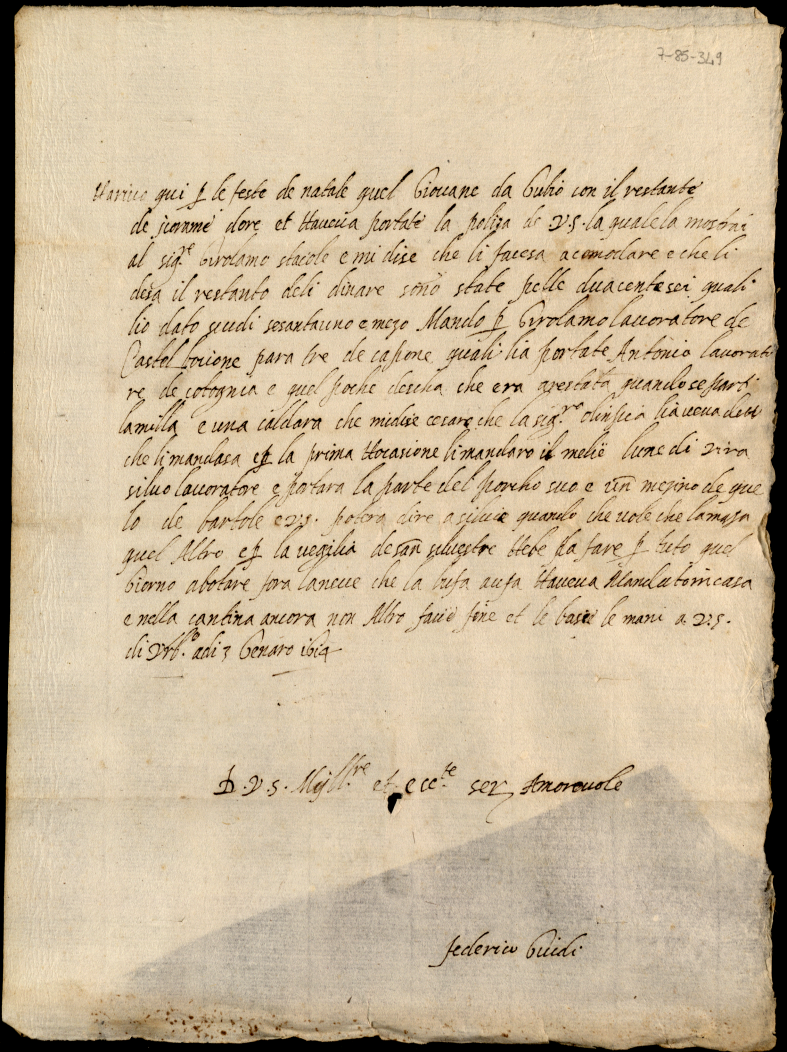 7-85-349
Harivo qui p le feste de natale quel Giovane da Gubio con il restante
de dore et Haveva portate la poliza de V.S. la quale la mostrai
al sig.re Girolamo stacole e mi dise che li facesa acomodare e che li
desa il restanto deli dinare sono state pelle duacentesei quali
lio dato scudi sesantauno e mezo Mando p Girolamo lavoratore de
Castel para tre de capone quali lia portate Antonio lavorato
re de cotognia e quel poche descha che era arestata quando se parti
lamilla e una caldara che midise cesare che la sig.re olinpica
che li mandasa e p la prima Hocasione li mandaro il melie lune di vira
silvo lavoratore e portara la parte del porcho suo e un mezino de que
lo de bartole e V.S. potera dire a silvio quando che vole che lamaza
quel Altro e p la vegilia de san silvestre Hebe da fare p tuto quel
Giorno abotare fora laneve che la bufa Haveva Mandato in casa
e nella cantina ancora non Altro facio fine et le bascio le mani a V.S.
di Urb.o adi 3 Genaro 1614
D.V.S. Ill.re et ecc.te ser Amorevole
federico Guidi